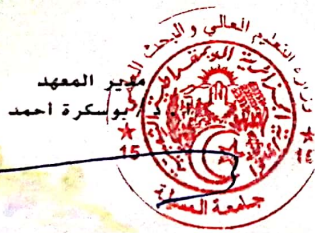 وزارة التعليم العالي و البحث
الجمهورية الجزائرية الديمقراطية
مدير المعهد
د/ بوسكرة أحمد
15
جامعة المسيلة